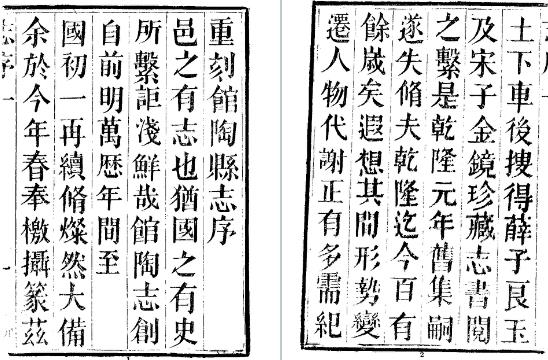 重刻館陶縣志序
邑之有志也猶國之有史
所繫詎淺鮮哉館陶志創
自前明萬歷年間至
國初一再續脩燦然大備
余於今年春奉檄攝篆茲
志序 一
1
土下車後搜得薛子良玉
及宋子金鏡珍藏志書閱
之繫是乾隆元年舊集嗣
遂失脩夫乾隆迄今百有
餘歲矣遐想其間形勢變
遷人物代謝正有多需紀
2